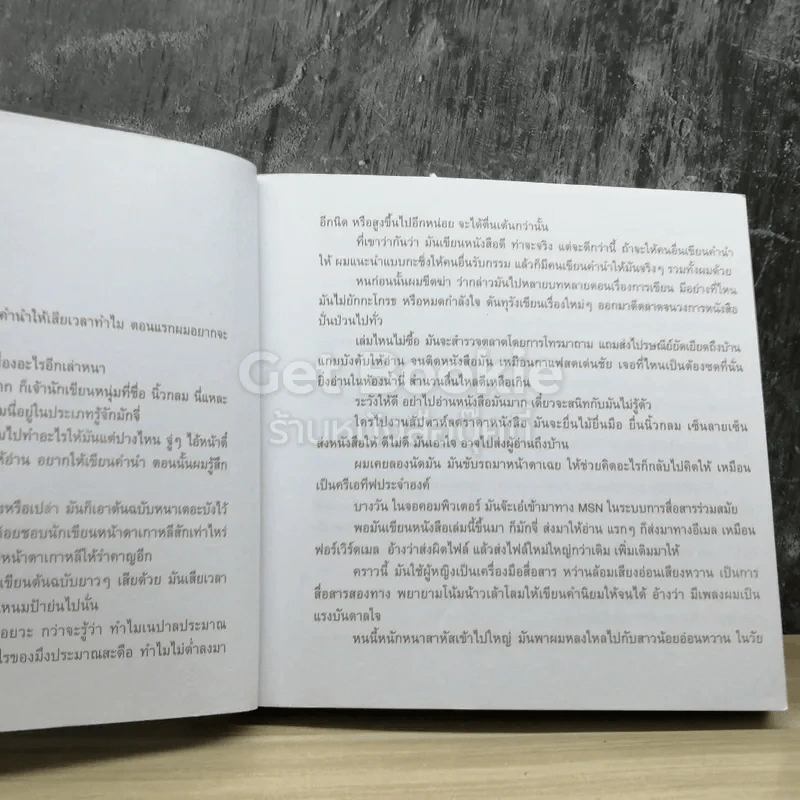 คำนำให้เสียเวลาทำไม ตอนแรกผมอยากจะ
องอะไรอีกเล่าหนา
ก ก็เจ้านักเขียนหนุ่มที่ชื่อ นิ้วกลม นี่แหละ
มนี่อยู่ในประเภทรู้จักมักจี่
มไปทำอะไรให้มันแต่ปางไหน จู่ๆ ไอ้หน้าตี๋
ให้อ่าน อยากให้เขียนคำนำ ตอนนั้นผมรู้สึก
รหรือเปล่า มันก็เอาต้นฉบับหนาเตอะบังไว้
อยชอบนักเขียนหน้าตาเกาหลีสักเท่าไหร่
หน้าตาเกาหลีให้รำคาญอีก
เขียนต้นฉบับยาวๆ เสียด้วย มันเสียเวลา
ไหนมป้าย่นไปนั่น
อยวะ กว่าจะรู้ว่า ทำไมเนปาลประมาณ
ไรของมึงประมาณสะดือ ทำไมไม่ต่ำลงมา
อีกนิด หรือสูงขึ้นไปอีกหน่อย จะได้ตื่นเต้นกว่านั้น
ที่เขาว่ากันว่า มันเขียนหนังสือดี ท่าจะจริง แต่จะดีกว่านี้ ถ้าจะให้คนอื่นเขียนคำนำ
ให้ ผมแนะนำแบบกะซึ่งให้คนอื่นรับกรรม แล้วก็มีคนเขียนคำนำให้มันจริงๆ รวมทั้งผมด้วย
หนก่อนนั้นผมขีดฆ่า ว่ากล่าวมันไปหลายบทหลายตอนเรื่องการเขียน มีอย่างที่ไหน
มันไม่ยักกะโกรธ หรือหมดกำลังใจ ดันทุรังเขียนเรื่องใหม่ๆ ออกมาตีตลาดจนวงการหนังสือ
ปั่นป่วนไปทั่ว
เล่มไหนไม่ซื้อ มันจะสำรวจตลาดโดยการโทรมาถาม แถมส่งไปรษณีย์ยัดเยียดถึงบ้าน
แกมบังคับให้อ่าน จนติดหนังสือมัน เหมือนกาแฟสดเด่นชัย เจอที่ไหนเป็นต้องซดที่นั่น
ยิ่งอ่านในห้องน้ำนี่ สำนวนลื่นไหลดีเหลือเกิน
ระวังให้ดี อย่าไปอ่านหนังสือมันมาก เดี๋ยวจะสนิทกับมันไม่รู้ตัว
ใครไปงานสัปดาห์ลดราคาหนังสือ มันจะยื่นไม้ยื่นมือ ยื่นนิ้วกลม เซ็นลายเซ็น
ส่งหนังสือให้ ดีไม่ดี มันเอาใจ อาจไปส่งผู้อ่านถึงบ้าน
ผมเคยลองนัดมัน มันขับรถมาหน้าตาเฉย ให้ช่วยคิดอะไรก็กลับไปคิดให้ เหมือน
เป็นครีเอทีฟประจำองค์
บางวัน ในจอคอมพิวเตอร์ มันจ๊ะเอ๋เข้ามาทาง MSN ในระบบการสื่อสารร่วมสมัย
พอมันเขียนหนังสือเล่มนี้ขึ้นมา ก็มักจี่ ส่งมาให้อ่าน แรกๆ ก็ส่งมาทางอีเมล เหมือน
ฟอร์เวิร์ดเมล อ้างว่าส่งผิดไฟล์ แล้วส่งไฟล์ใหม่ใหญ่กว่าเดิม เพิ่มเติมมาให้
คราวนี้ มันใช้ผู้หญิงเป็นเครื่องมือสื่อสาร หว่านล้อมเสียงอ่อนเสียงหวาน เป็นการ
สื่อสารสองทาง พยายามโน้มน้าวเล้าโลมให้เขียนคำนิยมให้จนได้ อ้างว่า มีเพลงผมเป็น
แรงบันดาลใจ
หนนี้หนักหนาสาหัสเข้าไปใหญ่ มันพาผมหลงใหลไปกับสาวน้อยอ่อนหวาน ในวัย
Get Bookie
ร้านหนังสือเก็ทบุ๊กกี้